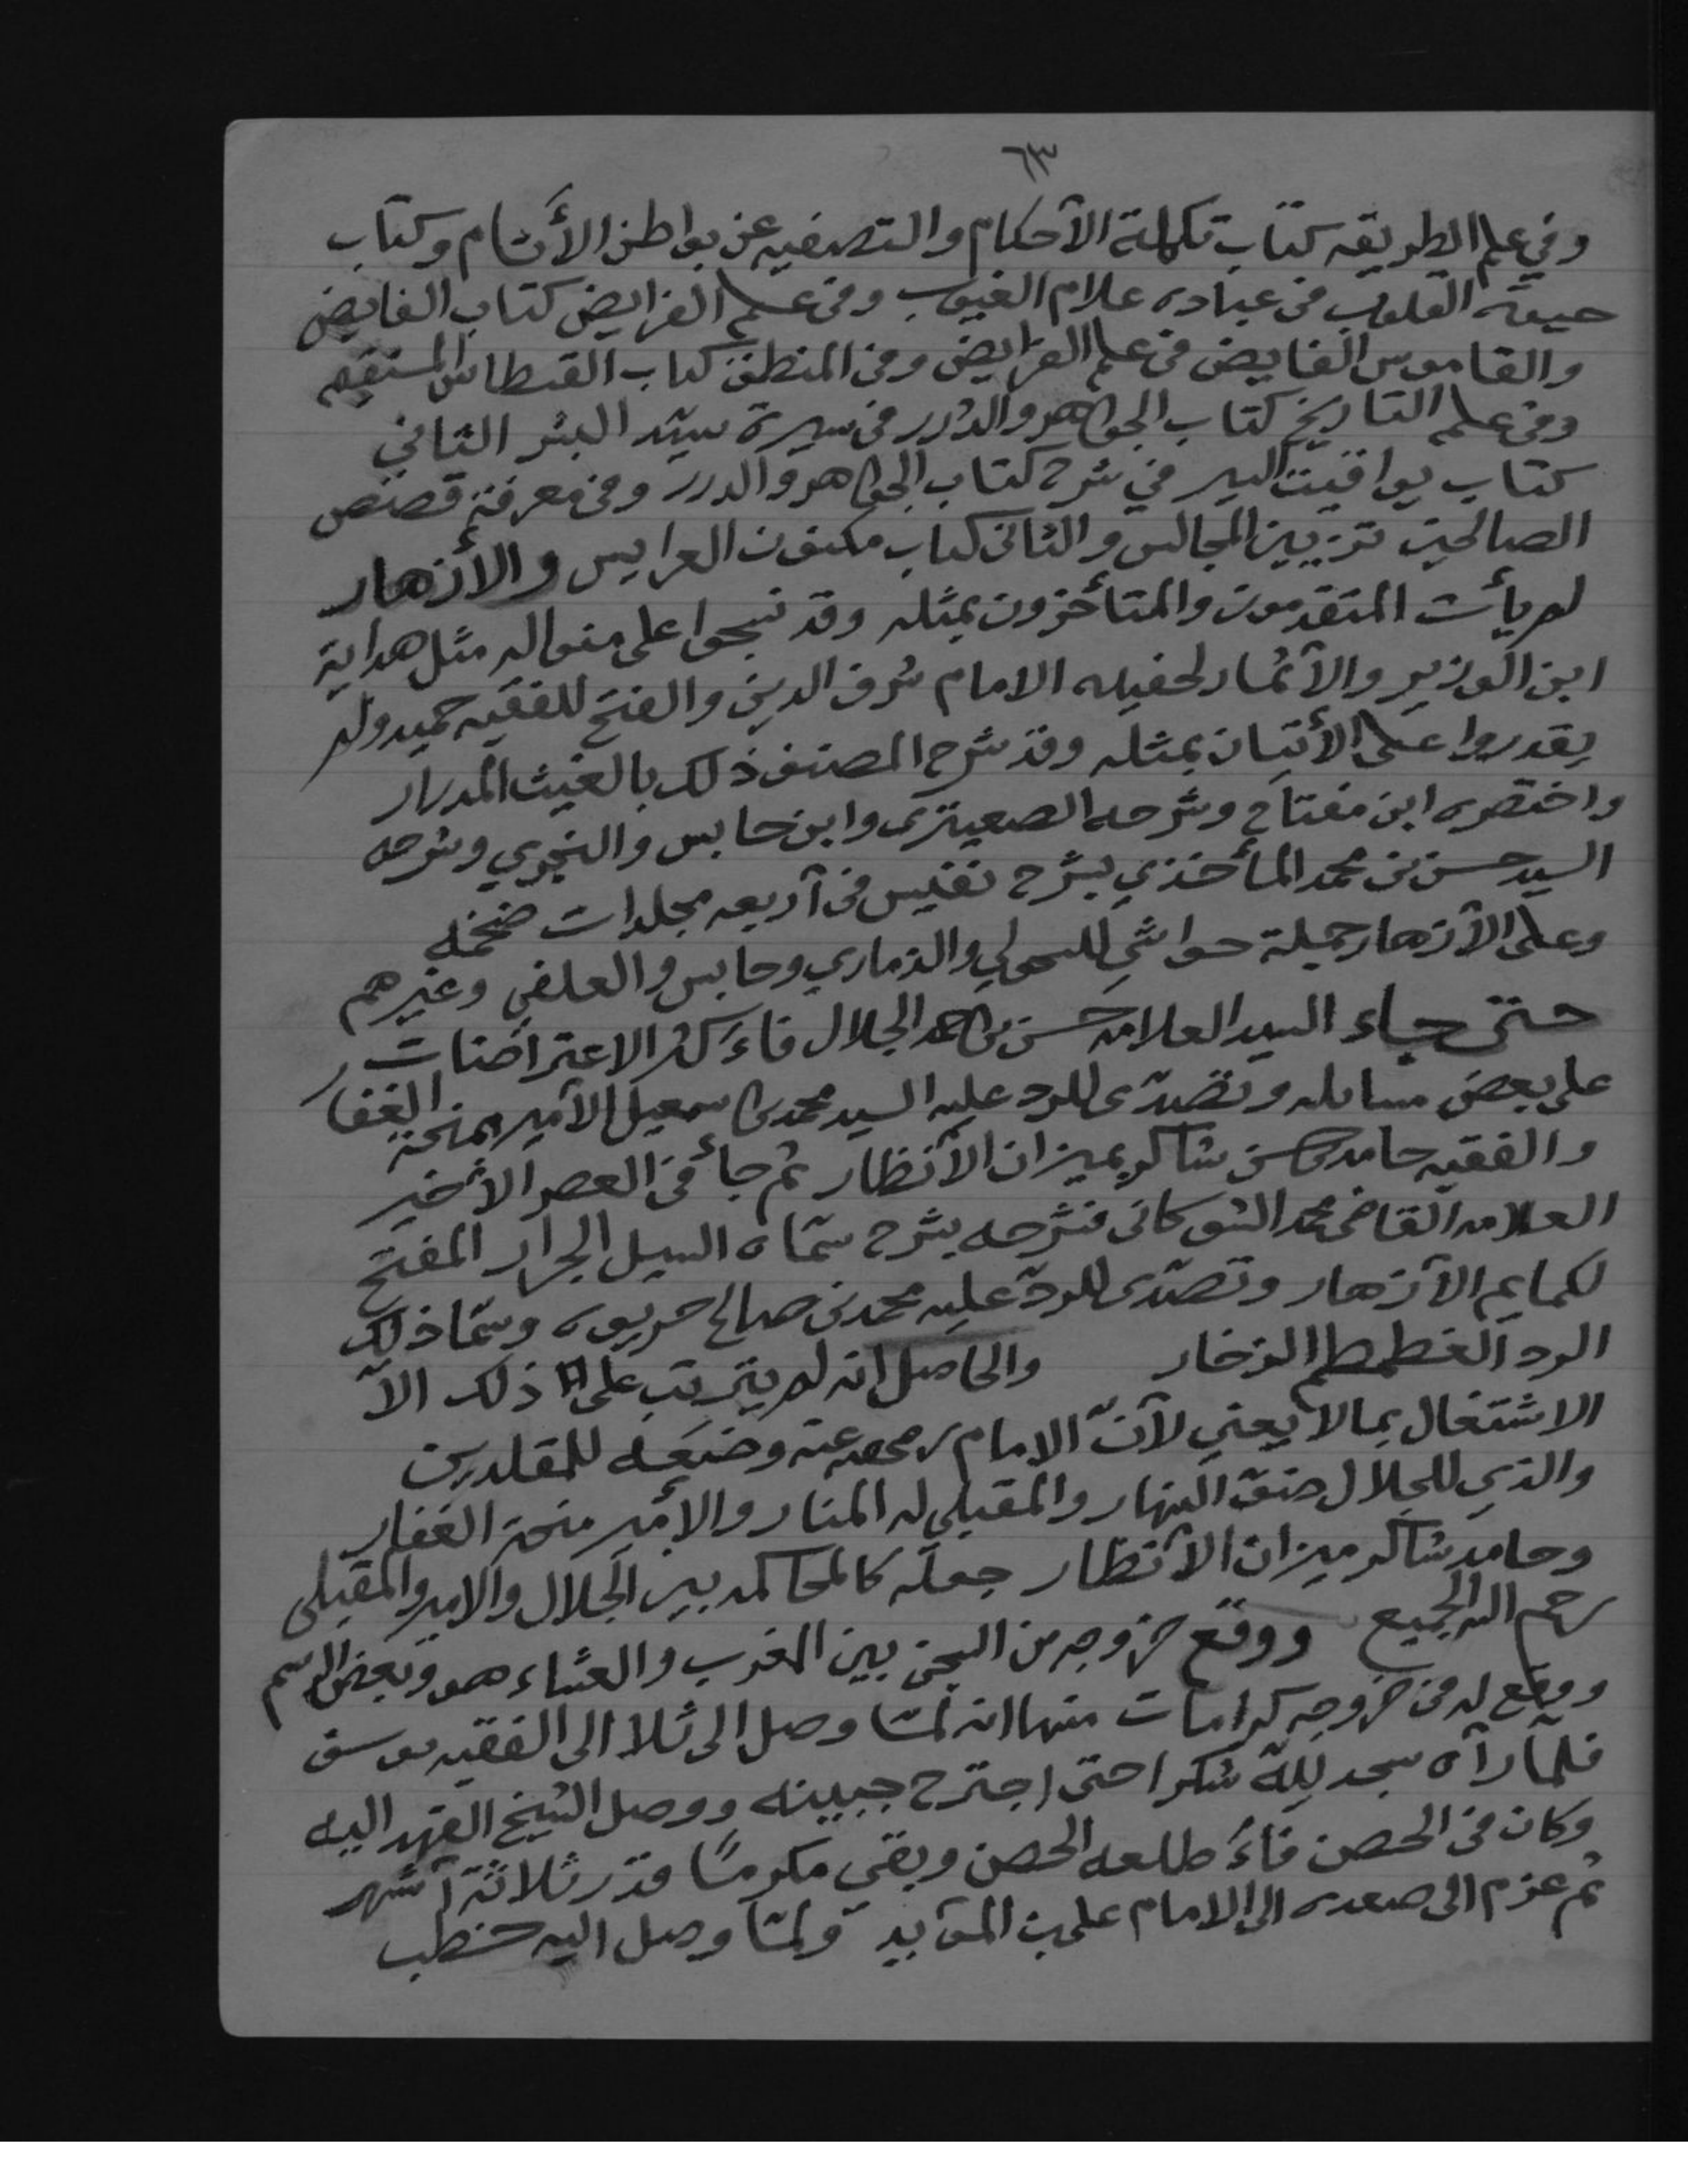 ٦٣
وفي علم الطريقه كتاب تكملة الأحكام والتصفيه عن بواطن الأثام وكتاب
حيوة القلوب فى عباده علام الغيوب وفى علم الفرايض كتاب الفايض
والقاموس الفايض فى علم الفرايض وفى المنطق كتاب القسطاس المستقيم
وفى علم التاريخ كتاب الجواهر والدرر فى سيرة سيّد البشر الثاني
كتاب يواقيت السير في شرح كتاب الجواهر والدرر وفى معرفة قصص
الصالحين تزيين المجالس والثانى كتاب مكنون العرايس والأزهار
لم يأت المتقدمون والمتأخرون بمثله وقد نسجوا على منواله مثل هداية
ابن الوزير والأثمار لحفيده الامام شرف الدين والفتح للفقيه حميد ولم
يقدروا على الأتيان بمثله وقد شرح المصنف ذلك بالغيث المدرار
واختصره ابن مفتاح وشرحه الصعيتري وابن حابس والنجري وشرحه
السيد حسن بن محمد المأخذي بشرح نفيس فى أربعه مجلدات ضخمه
وعلى الأزهار جملة حواشي للسحولي والذماري وحابس والعلفي وغيرهم
حتى جاء السيد العلامه حسن بن احمد الجلال فأكثر الاعتراضات
على بعض مسائله وتصدّى للرد عليه السيد محمد بن اسمعيل الأمير بمنحة الغفار
والفقيه حامد بن حسن شاكر بميزان الأنظار ثم جاء فى العصر الأخير
العلامه القاضى محمد الشوكانى فشرحه بشرح سمّاه السيل الجرار المفتح
لكمايم الأزهار وتصدّى للردّ عليه محمد بن صالح حريوه وسمّا ذلك
الرد الغطمطم الزخار والحاصل انه لم يترتب على ذلك الاّ
الاشتغال بما لا يعني لأنّ الامام وضعه للمقلدين
والذي للجلال ضوء النهار والمقبلي له المنار والأمير منحة الغفار
وحامد شاكر ميزان الأنظار جعله كالمحاكمه بين الجلال والامير والمقبلي
رحم الله الجميع ووقع خروجه من السجن بين المغرب والعشاء هو وبعض
ووقع له فى خروجه كرامات منها انه لمّا وصل الى ثلا الى الفقيه يوسف
فلمّا رآه سجد لله شكرا حتى اجترح جبينه ووصل الشيخ الفهد اليه
وكان فى الحصن فأطلعه الحصن وبقي مكرمًا قدر ثلاثة أشهر
ثم عزم الى صعده الى الامام على بن المؤيد ولمّا وصل اليه خطب